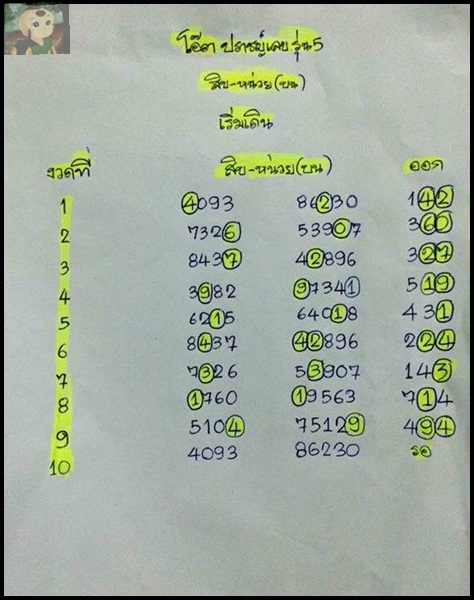 โอ๊ต ปราชญ์เลข รุ่น5
สิบ-หน่วย(บน)
เริ่มเดิน
งวดที่ สิบ-หน่วย(บน) ออก
1 4093 86230 142
2 7326 53907 360
3 8437 42896 327
4 3982 97341 519
5 6215 64018 431
6 8437 42896 224
7 7326 53907 143
8 1760 19563 714
9 5104 75129 494
10 4093 86230 รอ